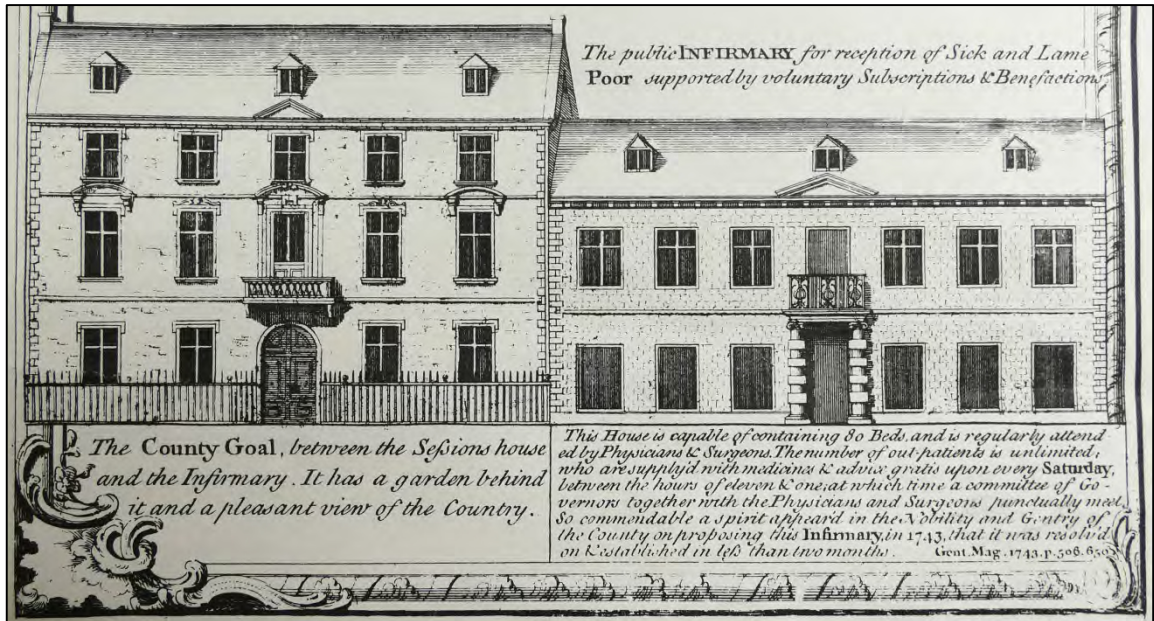 The public INFIRMARY for reception of Sick and Lame
Poor supported by voluntary Subscriptions & Benefactions
The County Goal, between the Seſsions house
and the Infirmary. It has a garden behind
it and a pleasant view of the Country.
This House is capable of containing 80 Beds, and is regularly attend
ed by Physicians & Surgeons. The number of out-patients is unlimited;
who are supply'd with medicines & advice gratis upon every Saturday,
between the hours of eleven & one; at which time a committee of Go-
vernors together with the Physicians and Surgeons punctually meet.
So commendable a spirit appeard in the Nobility and Gentry of
the County on proposing this Infirmary, in 1743, that it was resolv'd
on & established in leſs than two months. Gent. Mag. 1743. p. 506.